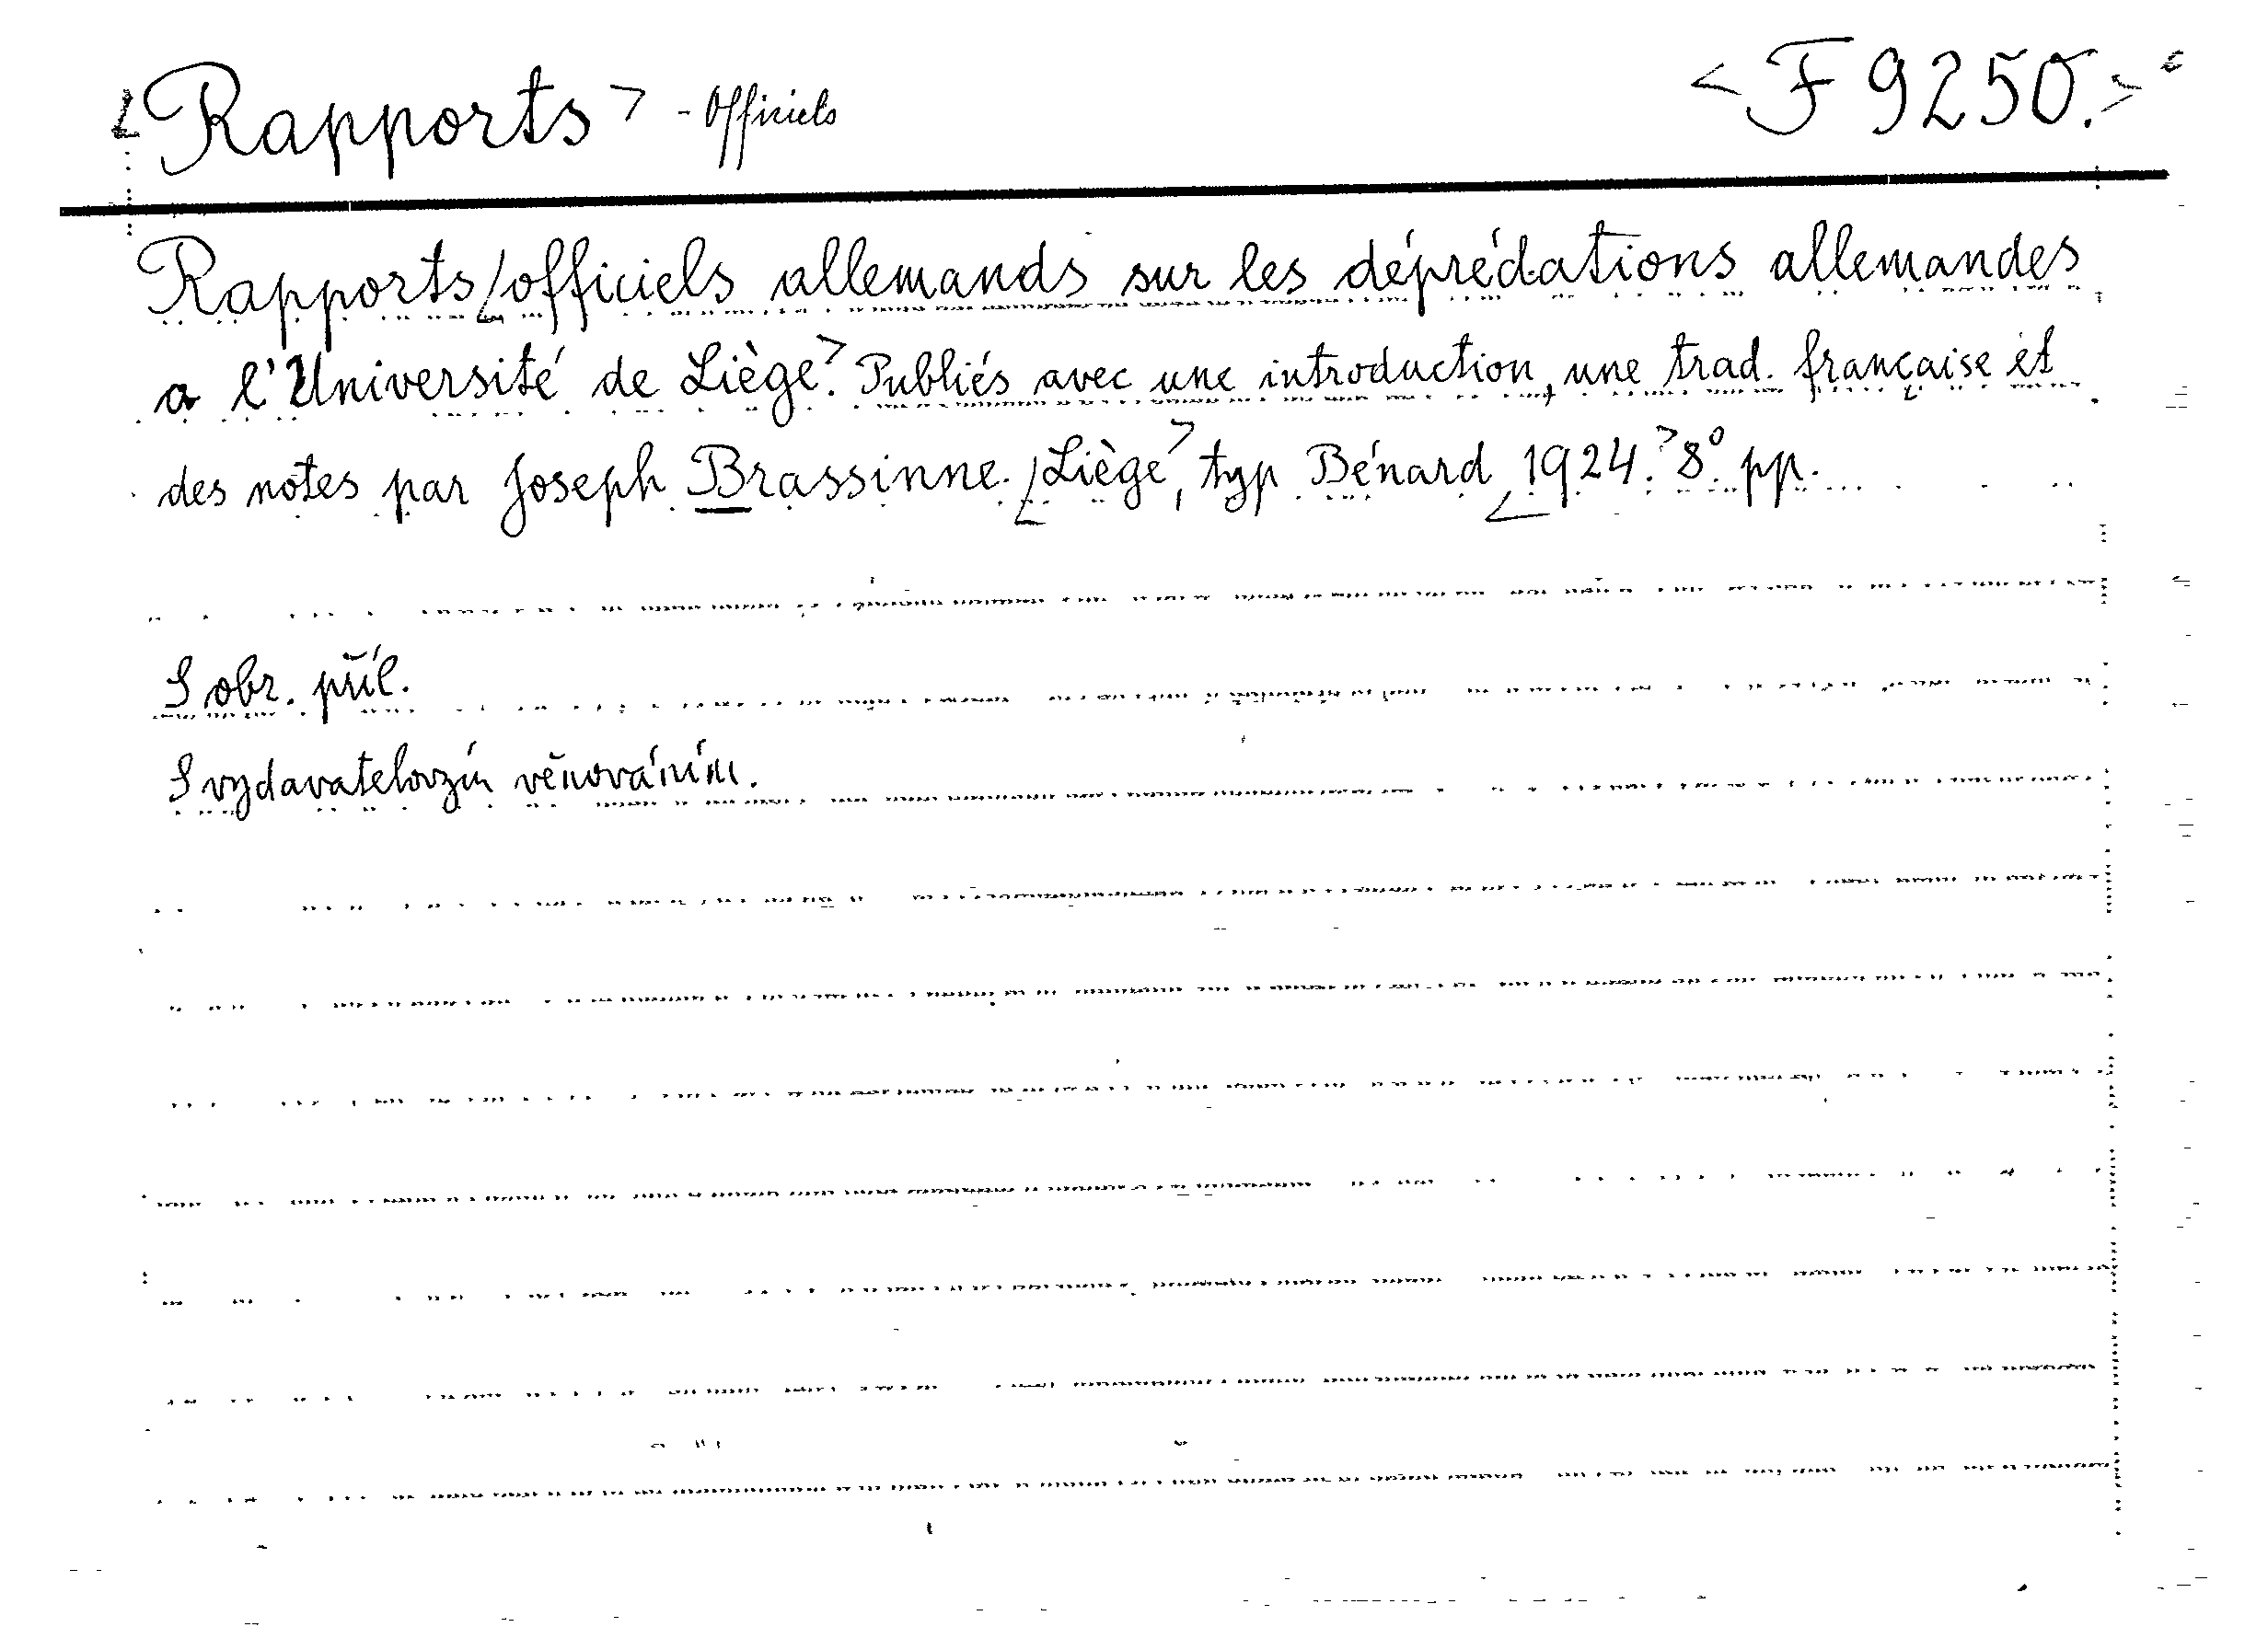 <Rapports> - Officiels <F 9250.>
Rapports/officiels allemands sur les déprédations allemandes
a l'Université de Liège>. Publiés avec une introduction, une trad. française et
des notes par Joseph Brassinne. <Liège>, typ Bénard <1924.> 8°. pp.
S obr. příl.
S vydavatelovým věnováním.